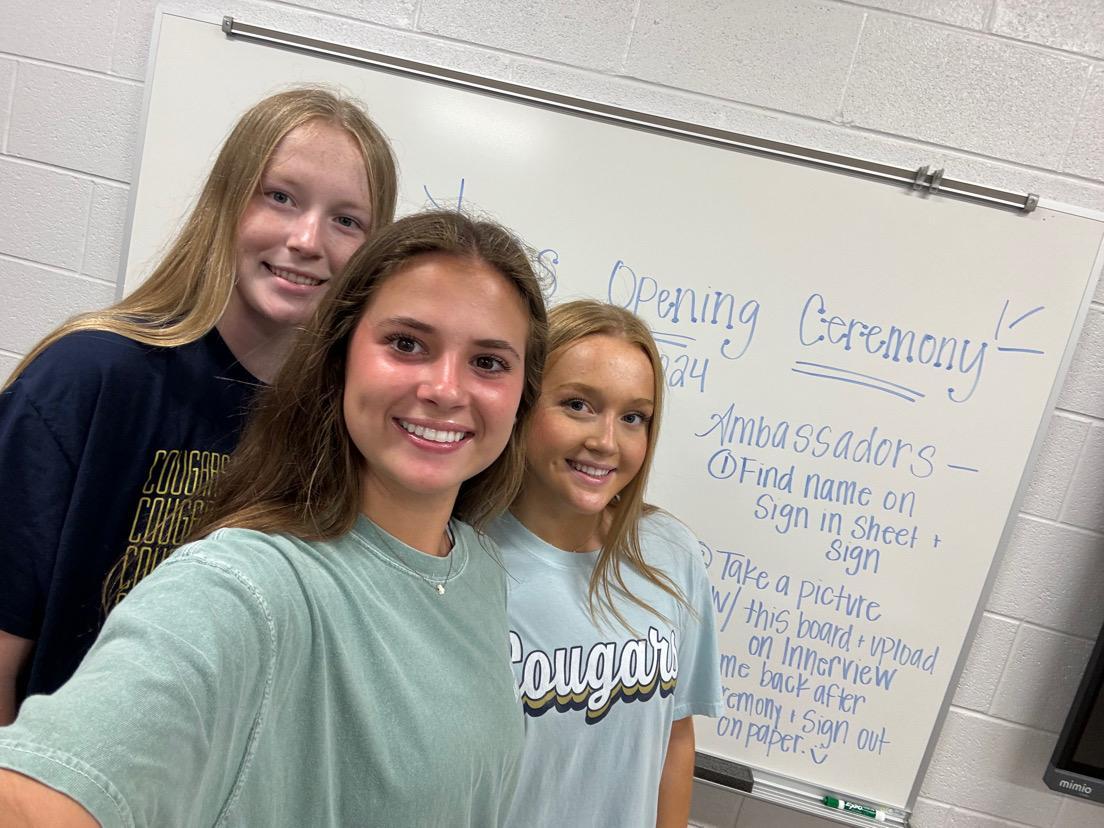 Opening Ceremony
Ambassadors -
① Find name on
Sign in sheet +
Sign
Take a picture
w/ this board + upload
on Innerview
back after
+ Sign out
on paper.
COUGARS
Cougars
mimio
EXPO